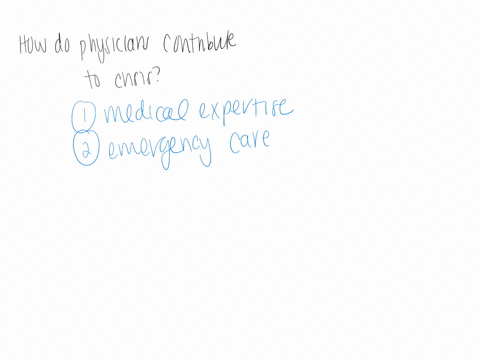 How do physicians contribute
to chris?
1 medical expertise
2 emergency care